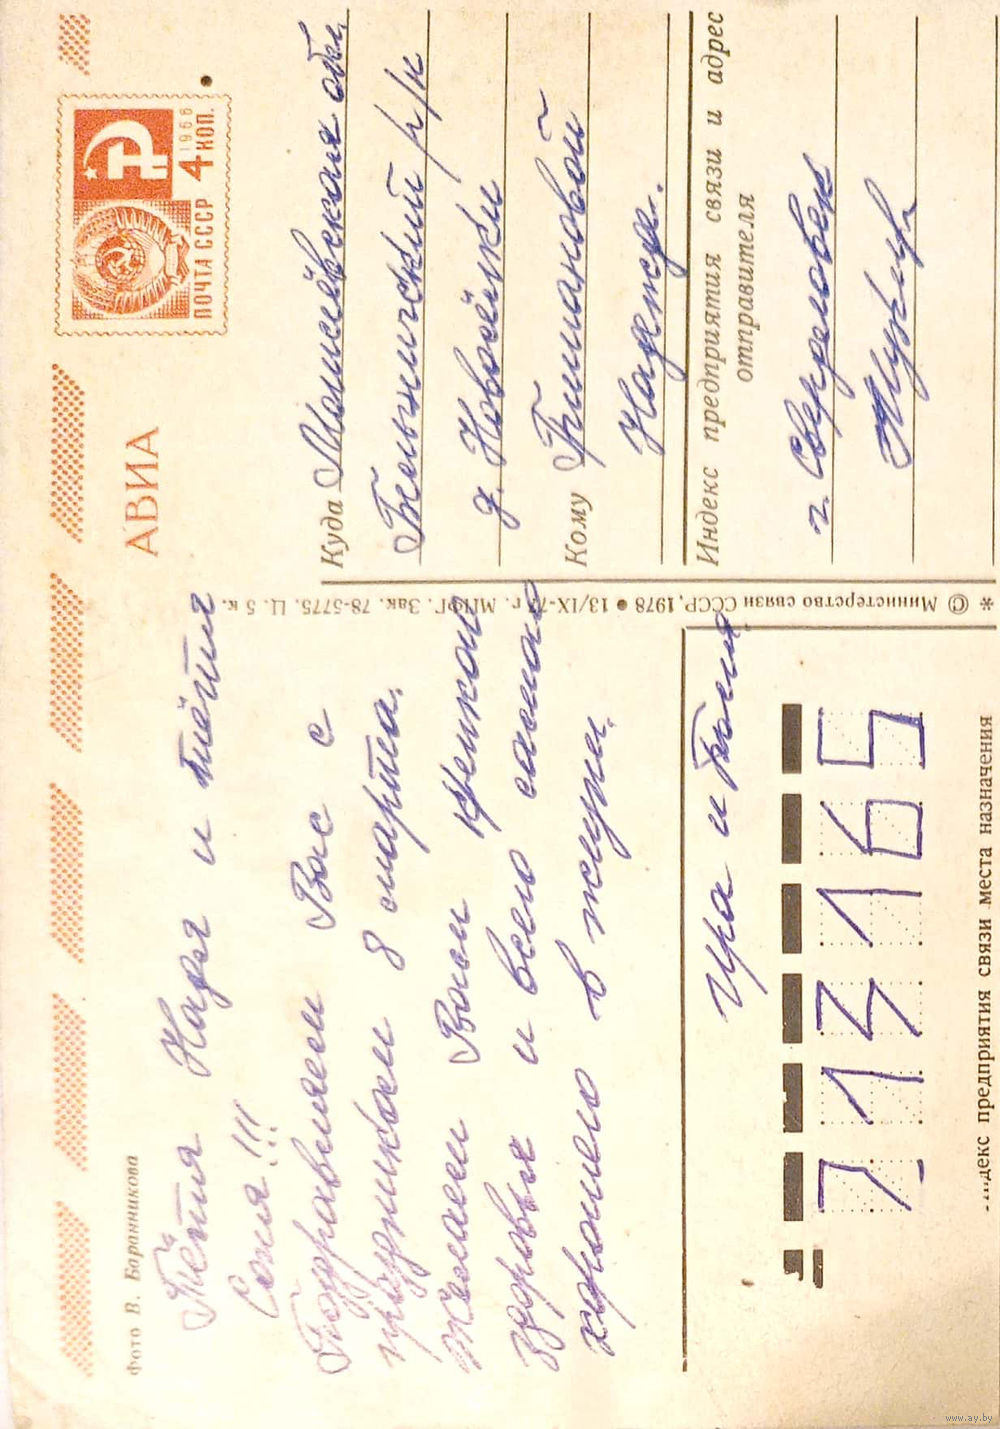 Фото В. Баранникова
АВИА
ПОЧТА СССР
1966
4 КОП.
Тётя Надя и тётя
Соня!!!
Поздравляем Вас с
праздником 8 марта.
Желаем Вам крепкого
здоровья и всего самого
хорошего в жизни.
Ира и
Куда Могилёвская обл.
Белыничский р/н
д. Новосёлки
Кому
Надежде.
Индекс предприятия связи и адрес
отправителя
г. Свердловск
* © Министерство связи СССР, 1978 ● 13/IX-77 г. МПФГ. Зак. 78-5775. Ц. 5 к.
213165
Индекс предприятия связи места назначения
www.ay.by